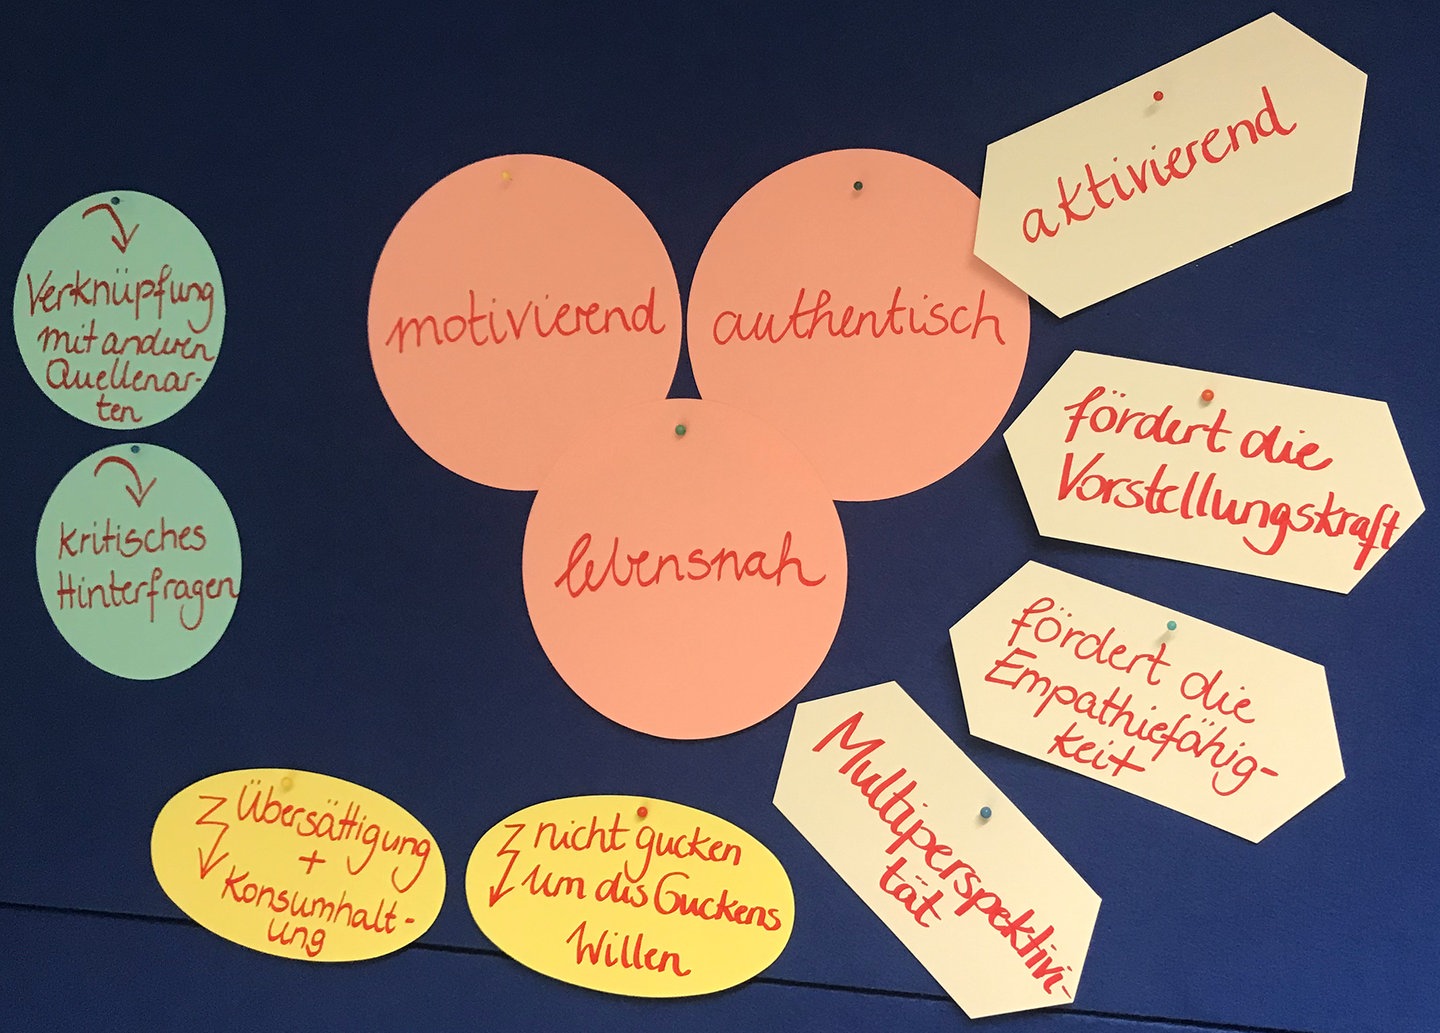 Verknüpfung
mit anderen
Quellenar-
ten
kritisches
Hinterfragen
motivierend
authentisch
lebensnah
aktivierend
fördert die
Vorstellungskraft
fördert die
Empathiefähig-
keit
Multiperspektivi-
tät
Übersättigung
+
Konsumhalt-
ung
nicht gucken
um des Guckens
Willen